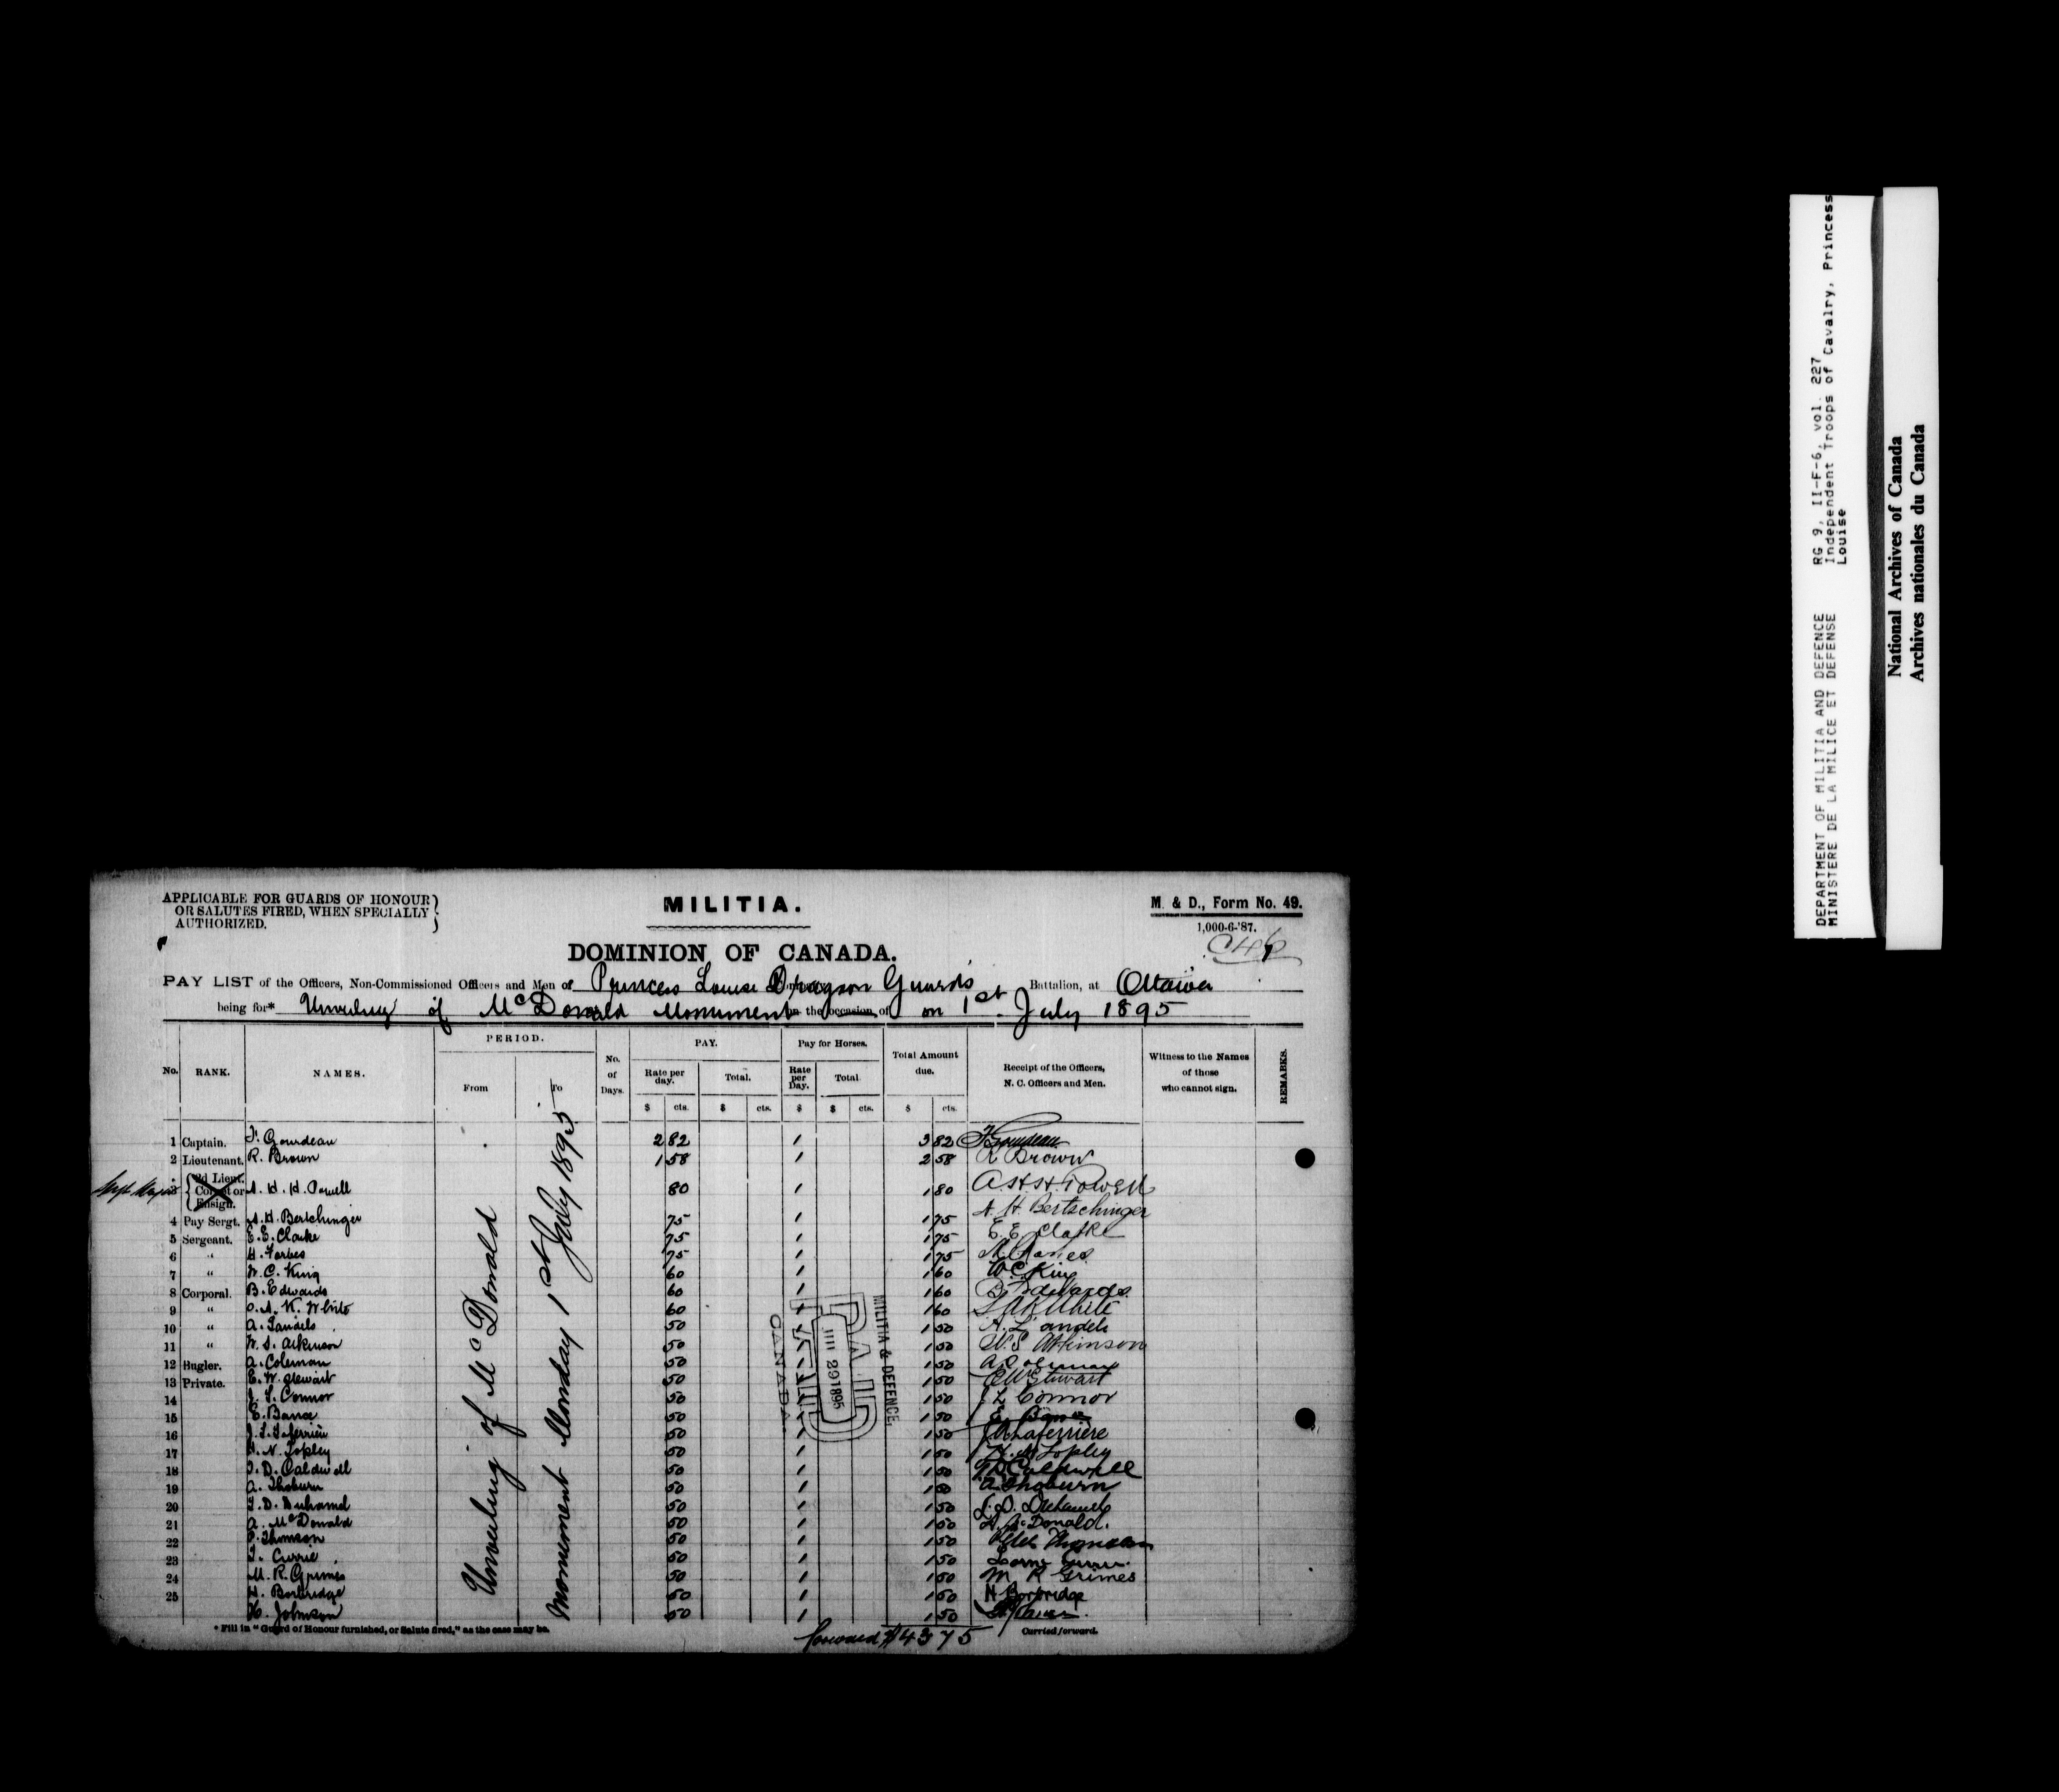 APPLICABLE FOR GUARDS OF HONOUR
OR SALUTES FIRED, WHEN SPECIALLY
AUTHORIZED.
MILITIA.
M. & D., Form No. 49.
1,000-6-'87.
DOMINION OF CANADA.
PAY LIST of the Officers, Non-Commissioned Officers and Men of Princess Louise Dragoon Guards Battalion, at Ottawa
being for* Unveiling of McDonald Monument on the occasion of on 1st July 1895
PERIOD. PAY. Pay for Horses.
No. RANK. NAMES. From To No. of Days. Rate per day. Total. Rate per Day. Total. Total Amount due. Receipt of the Officers, N. C. Officers and Men. Witness to the Names of those who cannot sign. REMARKS.
$ cts. $ cts. $ $ cts. $ cts.
Unveiling of McDonald
Monument Monday 1st July 1895
1 Captain. F. Gourdeau 2 82 1 3 82 F Gourdeau
2 Lieutenant. R. Brown 1 58 1 2 58 R Brown
Sergt Major 3 2d Lieut. Cornet or Ensign. A. H. H. Powell 80 1 1 80 A. H. H. Powell
4 Pay Sergt. A. H. Bertschinger 75 1 1 75 A. H. Bertschinger
5 Sergeant. E. E. Clarke 75 1 1 75 E. E. Clarke
6 " H. Forbes 75 1 1 75
7 " W. C. King 60 1 1 60 W C King
8 Corporal. B. Edwards 60 1 1 60 B. Edwards
9 " A. K. White 60 1 1 60 AK White
10 " A. Landels 50 1 1 50 A. Landels
11 " W. S. Atkinson 50 1 1 50 W. S Atkinson
12 Bugler. A. Coleman 50 1 1 50 A. Coleman
13 Private. E. W. Stewart 50 1 1 50 EW Stewart
14 J. L. Connor 50 1 1 50 J L Connor
15 E. Bance 50 1 1 50 E.
16 J. L. Laferriere 50 1 1 50 Laferriere
17 H. N. Topley 50 1 1 50 H. N Topley
18 T. D. Caldwell 50 1 1 50 T D Caldwell
19 A. Thoburn 50 1 1 50 A. Thoburn
20 L. D. Duhamel 50 1 1 50 L. D. Duhamel
21 A. McDonald 50 1 1 50 A. McDonald.
22 P. Thomson 50 1 1 50 Thomson
23 L. Currie 50 1 1 50 Lorne Currie
24 M. R. Grimes 50 1 1 50 M R Grimes
25 H. Borbridge 50 1 1 50 H Borbridge
H. Johnson 50 1 1 50
MILITIA & DEFENCE,
PAID
JUL 29 1895
CANADA.
* Fill in "Guard of Honour furnished, or Salute fired," as the case may be.
forward $43 75
Carried forward.
DEPARTMENT OF MILITIA AND DEFENCE RG 9, II-F-6, vol. 227
MINISTERE DE LA MILICE ET DEFENSE Independent Troops of Cavalry, Princess
Louise
National Archives of Canada
Archives nationales du Canada